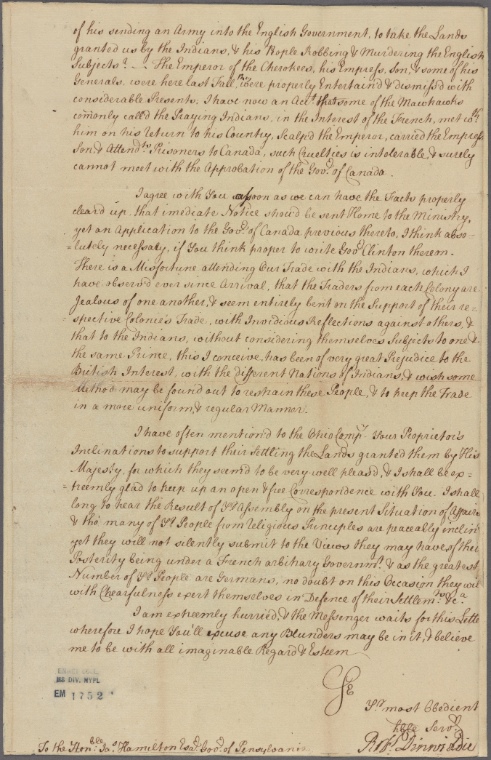 of his sending an Army into the English Government, to take the Lands
granted us by the Indians, & his People Robbing & Murdering the English
Subjects. — The Emperor of the Cherokees, his Empress, Son, & some of his
Generals, were here last Fall, were properly Entertain'd & dismiss'd with
considerable Presents. I have now an Acct. that some of the Mawhawks
comonly call'd the Praying Indians, in the Interest of the French, met with
him on his Return to his Country, Scalp'd the Emperor, carried the Empress
Son & Attendts. Prisoners to Canada, such Cruelties is intolerable & surely
cannot meet with the Approbation of the Govr. of Canada.
I agree with You as soon as we can have the Facts properly
clear'd up, that imediate Notice should be sent Home to the Ministry,
yet an Application to the Govr. of Canada previous thereto, I think abso-
lutely necessary, if You think proper to write Govr. Clinton thereon.
There is a Misfortune attending Our Trade with the Indians, which I
have observ'd ever since Arrival, that the Traders from each Colony are
Jealous of one another, & seem entirely bent on the Support of their re-
spective Colonie's Trade, with Invidious Reflections against others, &
that to the Indians, without considering themselves Subjects to one &
the same Prince, this I conceive, has been of very great Prejudice to the
British Interest, with the different Nations of Indians, & wish some
Method may be found out to restrain these People, & to keep the Trade
in a more uniform & regular Manner.
I have often mention'd to the Ohio Compy. Your Proprietor's
Inclinations to support their Settling the Lands granted them by His
Majesty, for which they seem'd to be very well pleas'd, & I shall be ex-
-treemly glad to keep up an open & free Correspondence with You. I shall
long to hear the Result of Yr. Assembly on the present Situation of Affairs
& tho' many of Yr. People from Religious Principles are peaceably inclin'd
yet they will not silently submit to the Views they may have of their
Posterity being under a French arbitrary Governmt. & as the greatest
Number of Yr. People are Germans, no doubt on this Occasion they will
with Chearfulness exert themselves in Defence of their Settlemts. &c.a
I am extremly hurried, & the Messenger waits for this Letter
wherefore I hope You'll excuse any Blunders may be in it, & believe
me to be with all imaginable Regard & Esteem
Yr. most Obedient
hble Servt.
Robt. Dinwiddie
MS DIV. NYPL
EM 1752
To the Honble. Jas. Hamilton Esqr. Govr. of Pensylvania